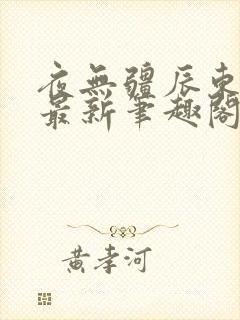 夜無疆辰東
最新筆趣閣
黃孝河